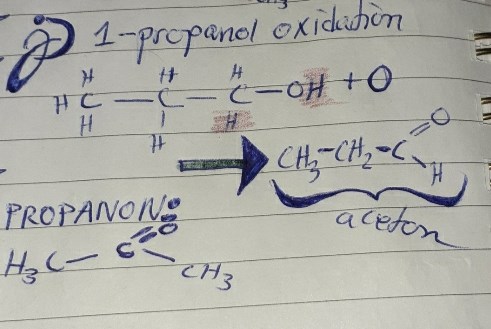 j) 1-propanol oxidation
H H H
H C — C — C — OH + O
H H H
CH₃-CH₂-C=O
H
aceton
PROPANON:
O
H₃C — C = CH₃